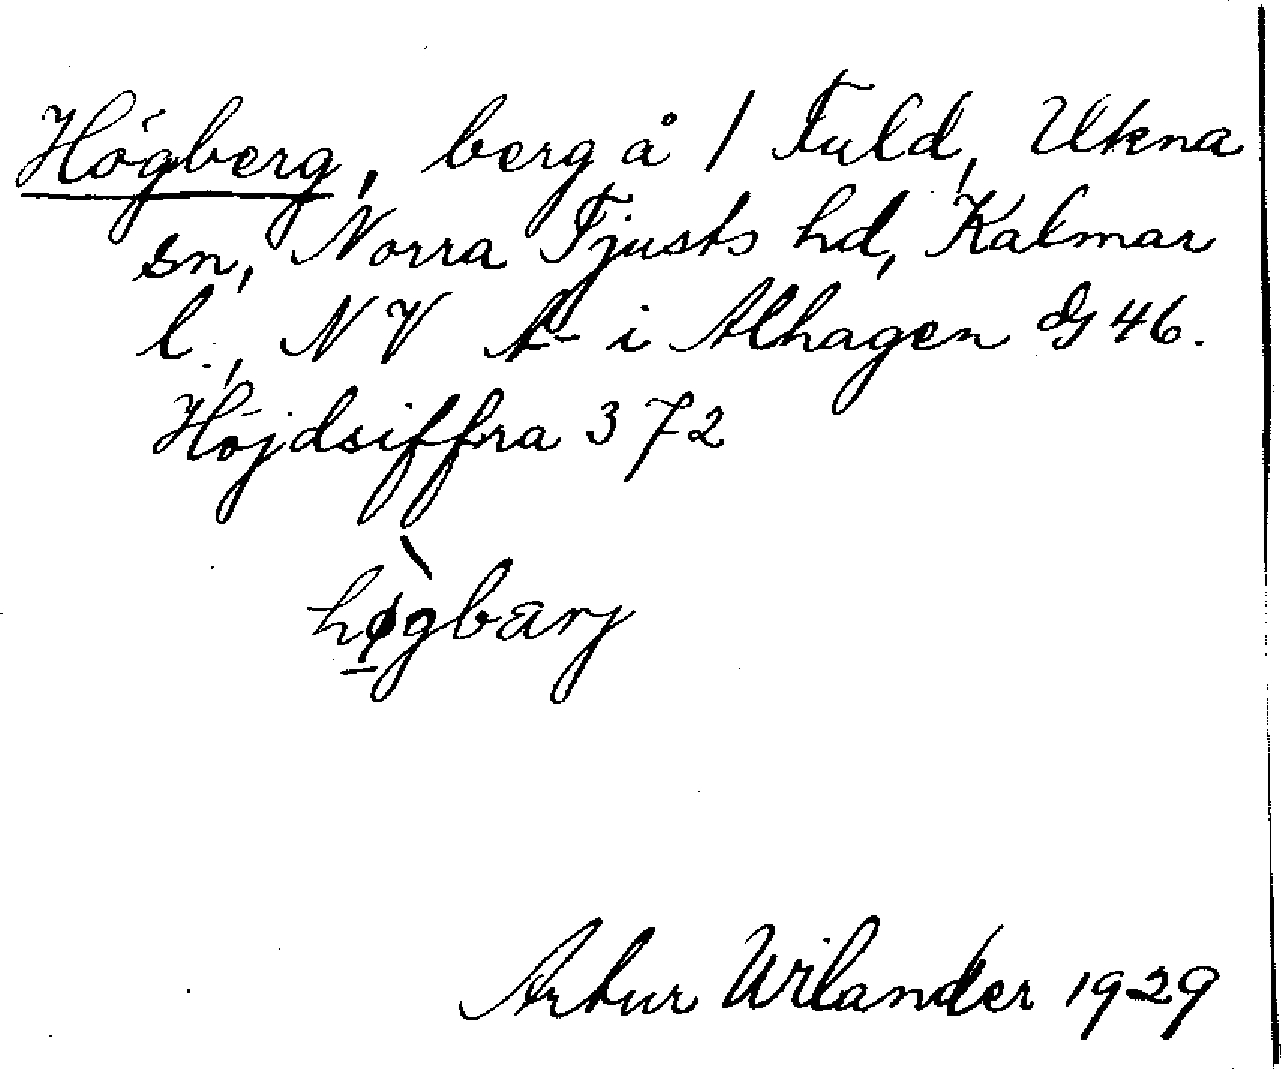 Högberg, berg å 1 Fuld, Ukna
sn, Norra Tjusts hd, Kalmar
l., NV A- i Alhagen G 46.
Höjdsiffra 372
hø̀gbärj
Artur Wilander 1929